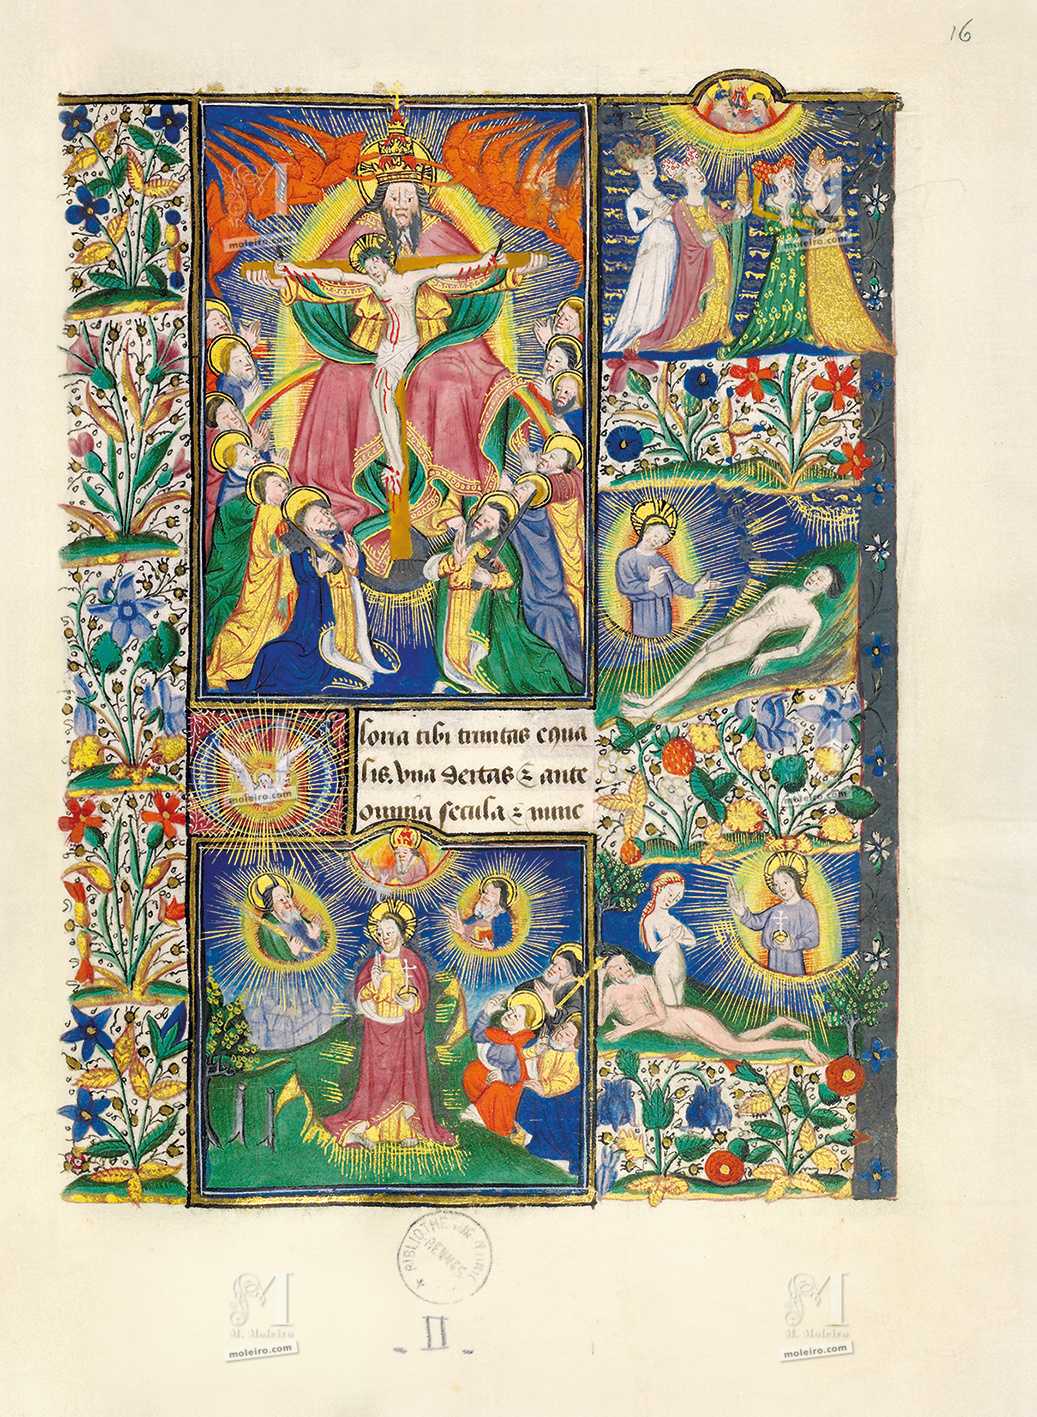 16
moleiro.com
moleiro.com
loria tibi trinitas equa
lis. Una deitas & ante
omnia secula & nunc
moleiro.com
moleiro.com
BIBLIOTHE
RENNES
- II -
M. Moleiro
moleiro.com
M. Moleiro
moleiro.com